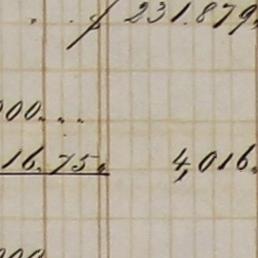 ƒ 231.879,
000. „ „
16.75. 4,016.
000